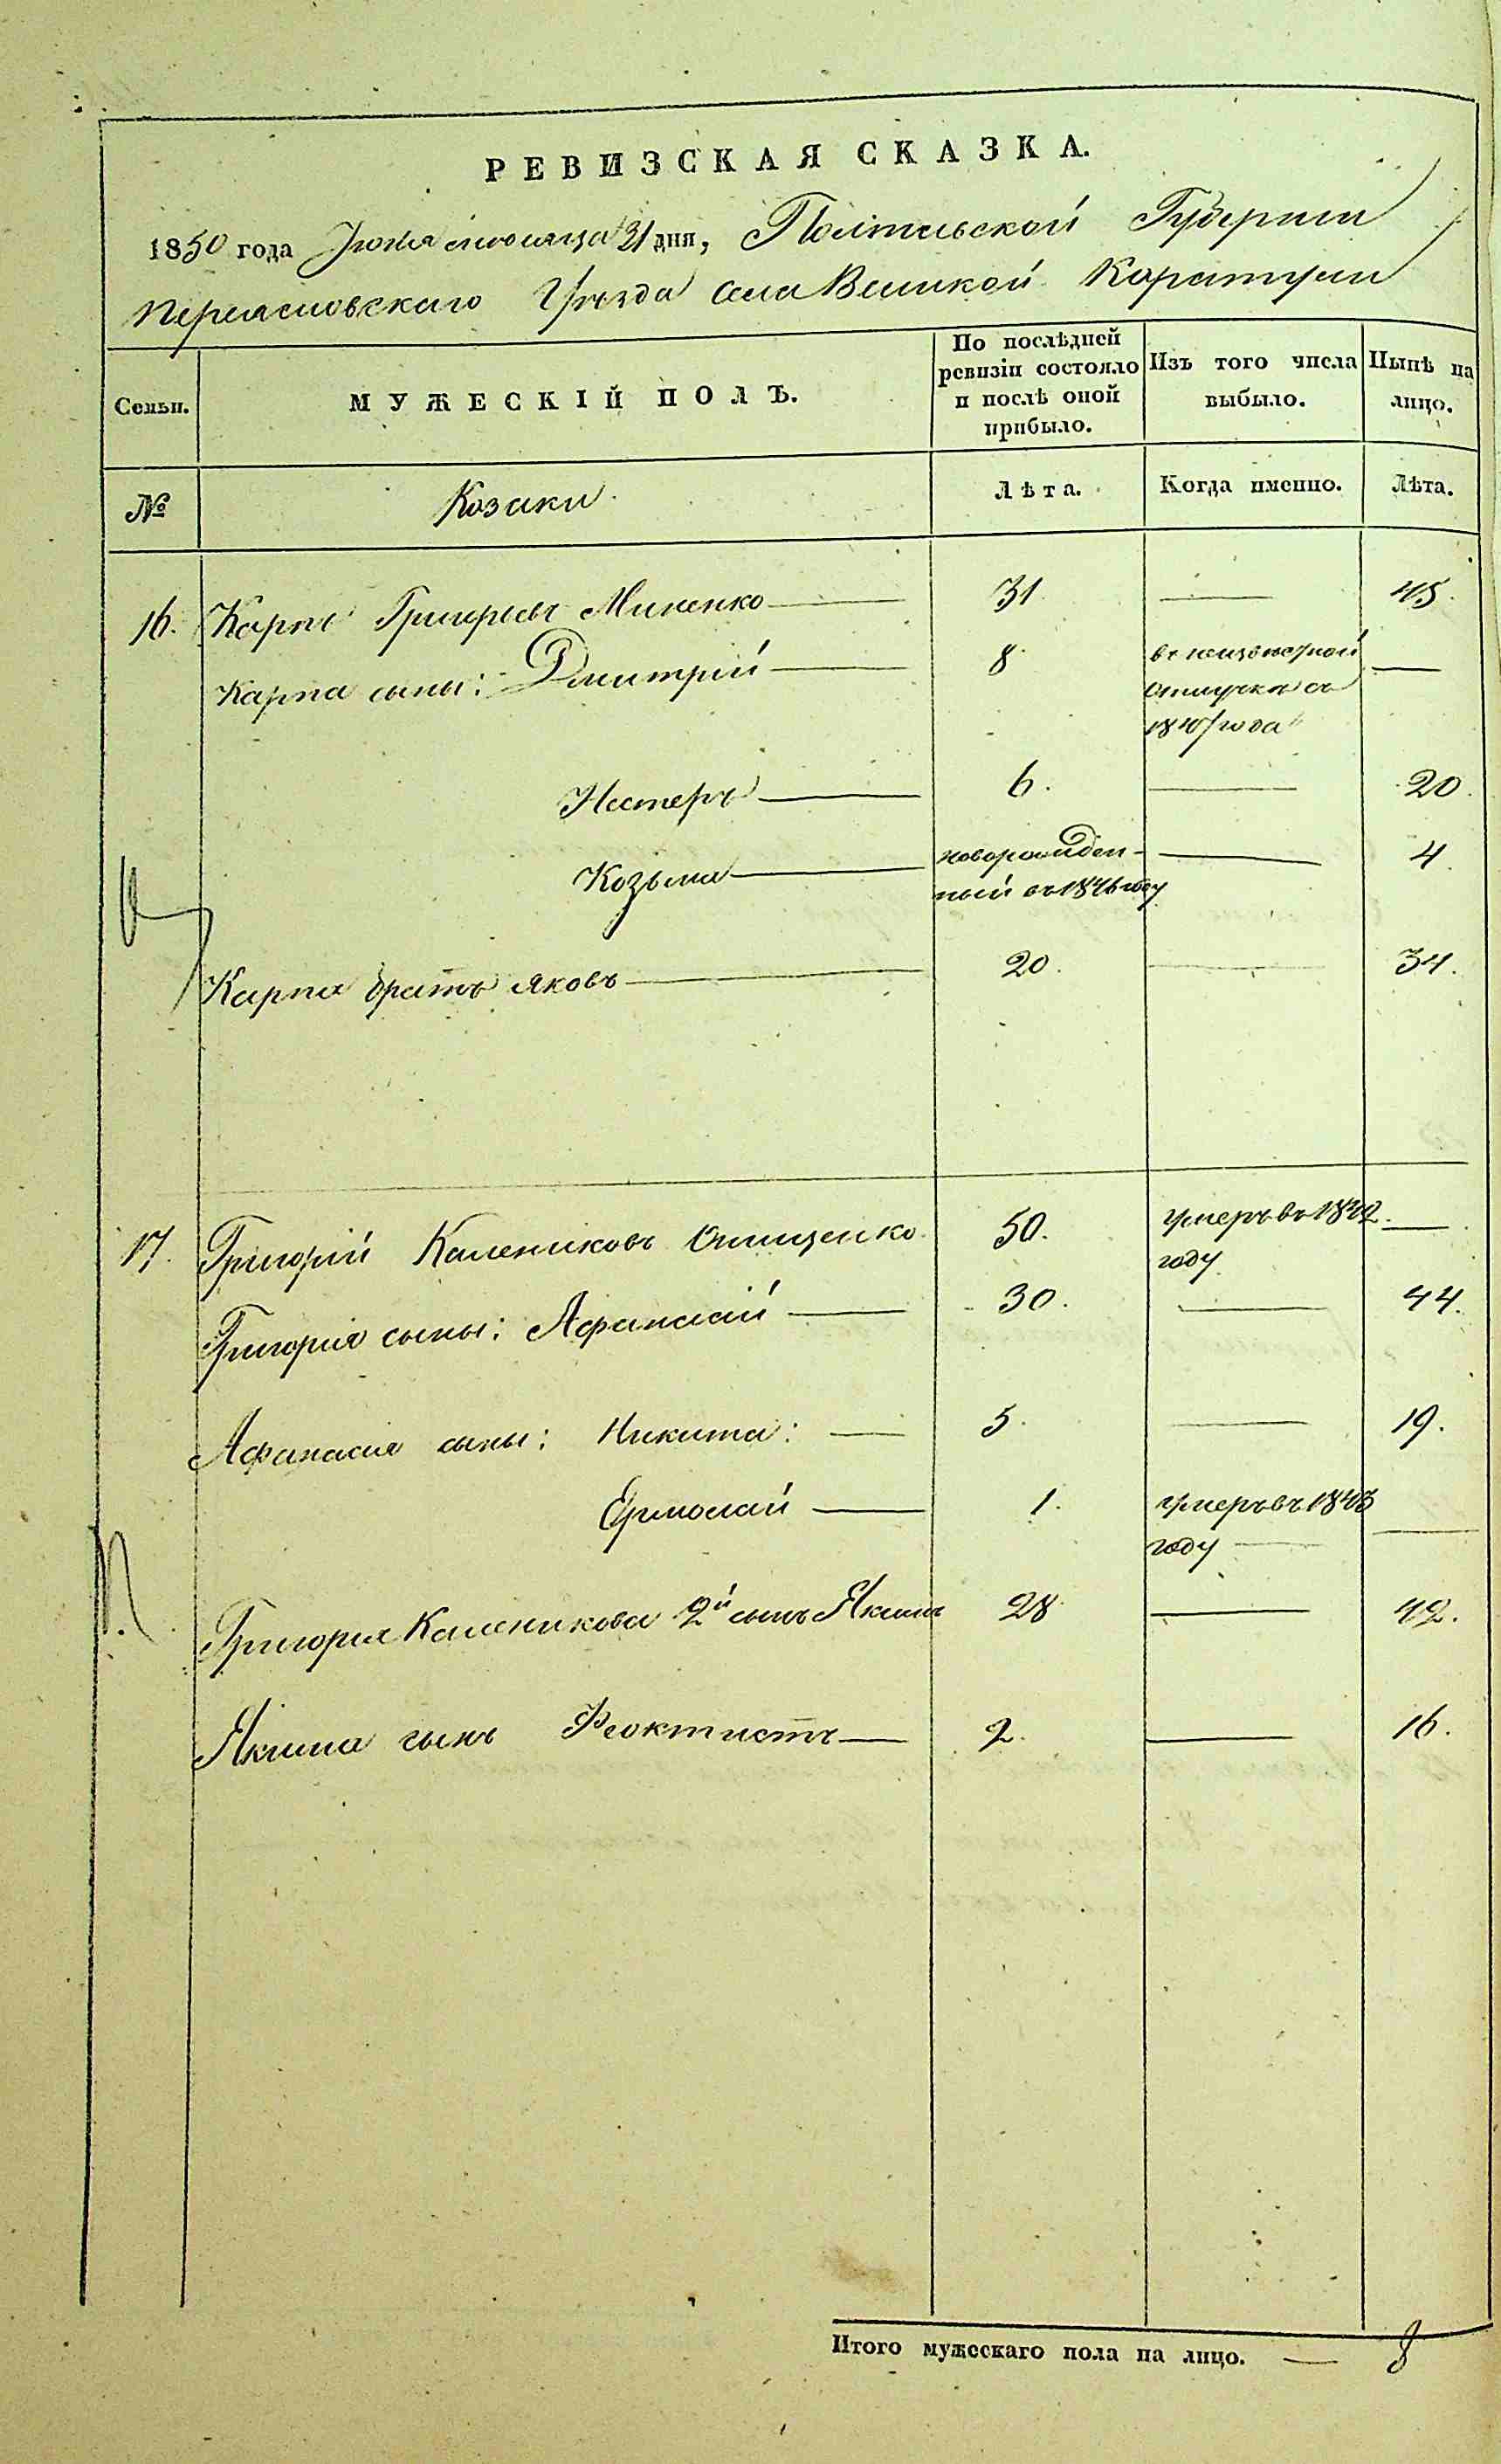 РЕВИЗСКАЯ СКАЗКА.
1850 года Июля мѣсяца 31 дня, Полтавской Губернии
Переясловскаго Уѣзда села Великой Каратули
Семьи.
МУЖЕСКІЙ ПОЛЪ.
По послѣдней
ревизіи состояло
и послѣ оной
прибыло.
Изъ того числа
выбыло.
Нынѣ на
лицо.
№
Козаки
Лѣта.
Когда именно.
Лѣта.
16. Карпъ Григорьевъ Миненко 31 45.
Карпа сыны: Дмитрій 8 въ неизвестной
отлучке съ
года
Нестеръ 6. 20.
Козьма новорожден-
ный въ 1846 году 4.
Карпа братъ Яковъ 20. 34.
17. Григорій Калениковъ Онищенко 50. умеръ въ 1842
году
Григорія сыны: Афанасій 30. 44.
Афанасія сыны: Никита: 5. 19.
Ермолай 1. умеръ въ 1843
году
Григорія Каленикова 2й сынъ Якимъ 28 42.
Якима сынъ Феоктистъ 2. 16.
Итого мужескаго пола на лицо. — 8